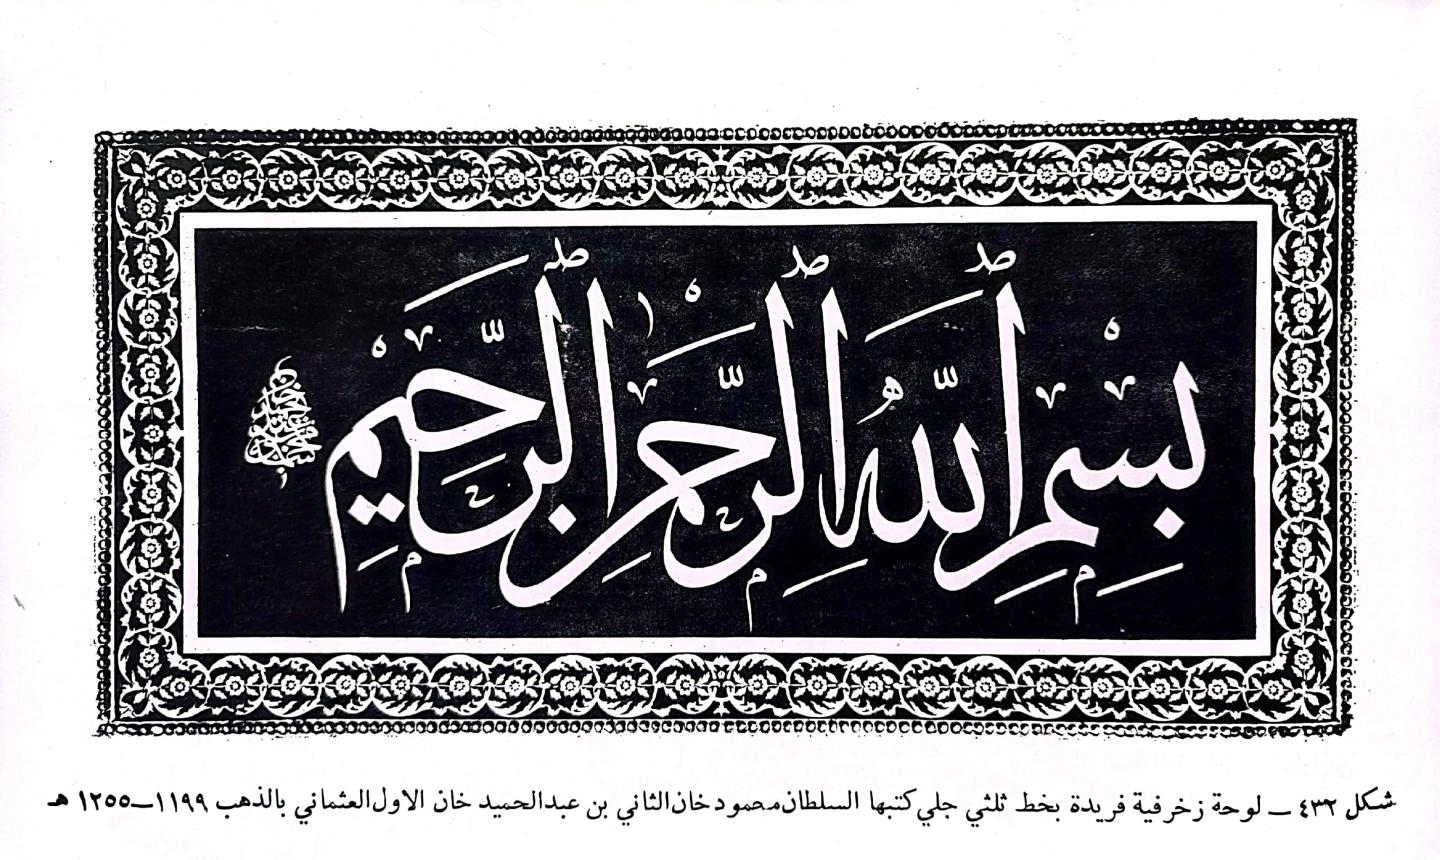 بِسْمِ اللّٰهِ الرَّحْمٰنِ الرَّحِيمِ
شكل ٤٣٢ — لوحة زخرفية فريدة بخط ثلثي جلي كتبها السلطان محمود خان الثاني بن عبدالحميد خان الاول العثماني بالذهب ١١٩٩—١٢٥٥ هـ